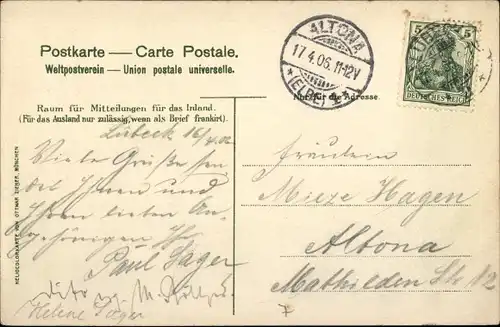 Postkarte — Carte Postale.
Weltpostverein — Union postale universelle.
Raum für Mitteilungen für das Inland.
(Für das Ausland nur zulässig, wenn als Brief frankirt).
Nur für die Adresse.
ALTONA
17.4.06.11-12V
* (ELBE) 1 *
5 5
DEUTSCHES REICH
Lübeck 16/4.06
Viele Grüße sen-
det Ihnen und
Ihren lieben An-
gehörigen Ihr
Paul Jäger
Helene Jäger
Fräulein
Mieze Hagen
Altona
Mathilden Str 12
HELIOCOLORKARTE VON OTTMAR ZIEHER, MÜNCHEN